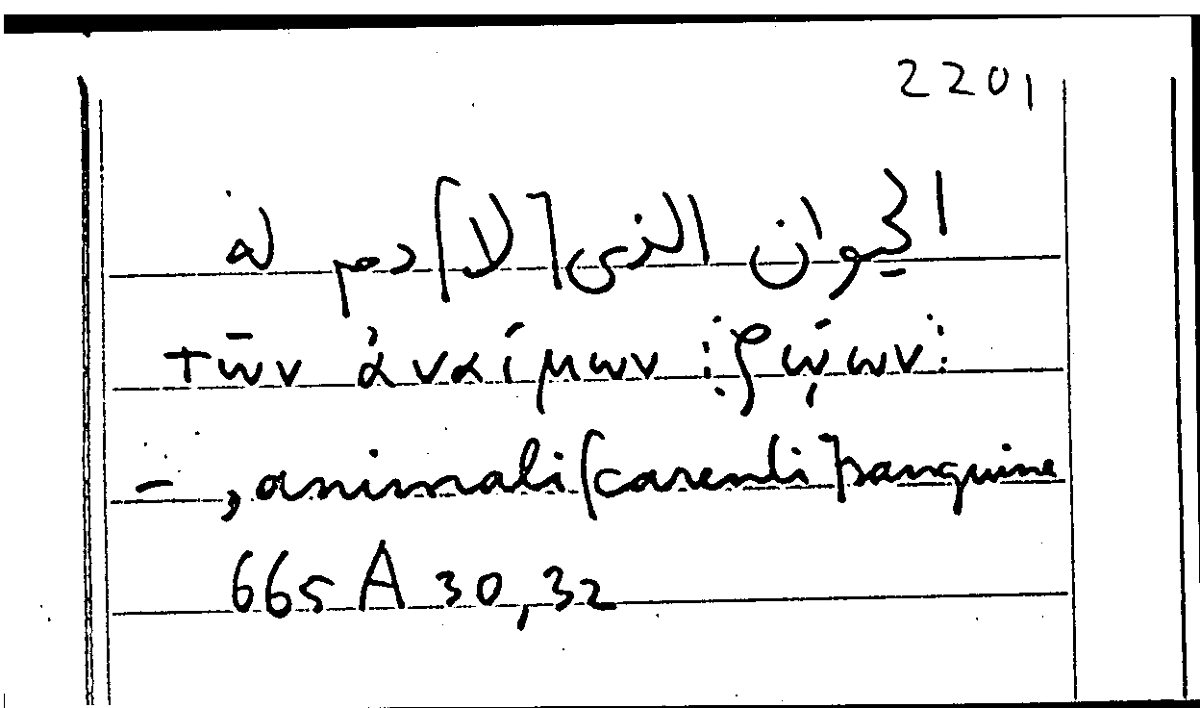 2201
الحيوان الذى [لا] دم له
τῶν ἀναίμων ⁝ ζῴων ⁝
–, animali [carenti] sanguine
665 A 30, 32